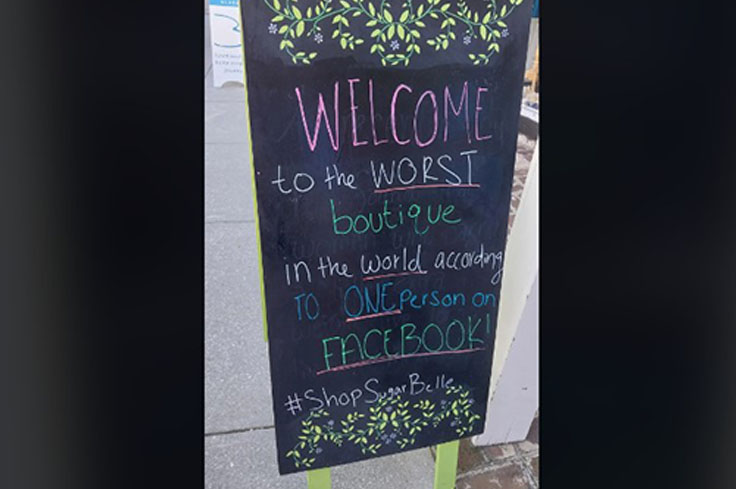 WELCOME
to the WORST
boutique
in the world according
TO ONE Person on
FACEBOOK!
#ShopSugarBelle